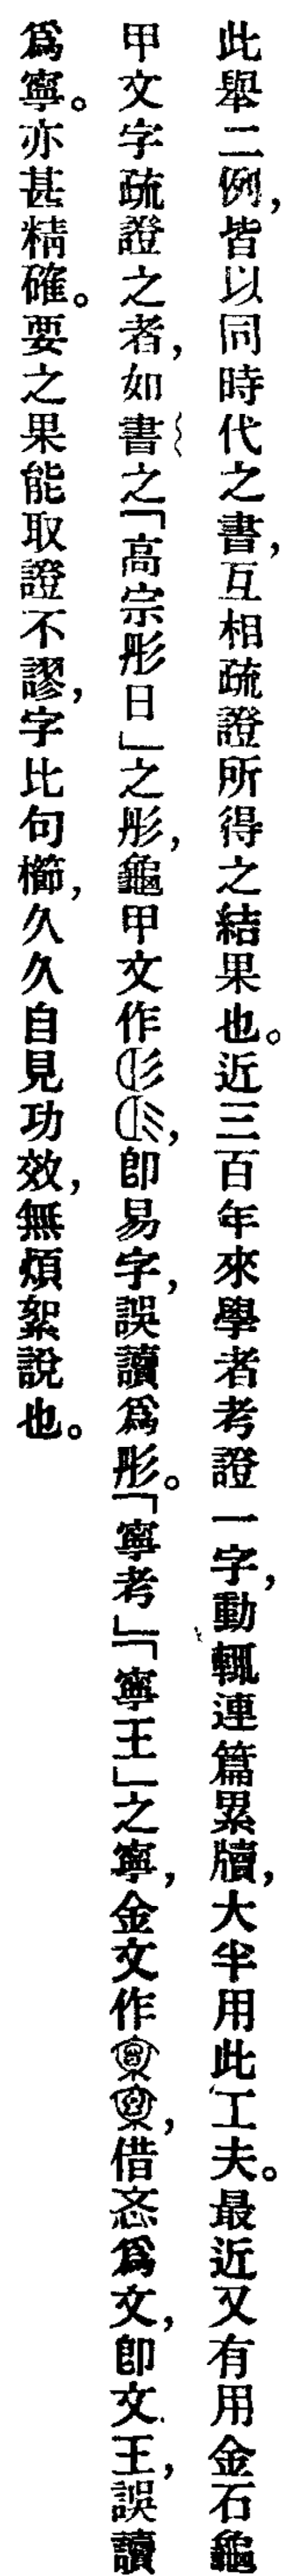 此舉二例，皆以同時代之書，互相疏證所得之結果也。近三百年來學者考證一字，動輒連篇累牘，大半用此工夫。最近又有用金石龜
甲文字疏證之者，如書之「高宗肜日」之肜，龜甲文作，卽易字，誤讀爲肜。「寧考」「寧王」之寧，金文作，借忞爲文，卽文王，誤讀
爲寧。亦甚精確。要之果能取證不謬，字比句櫛，久久自見功效，無煩絮說也。